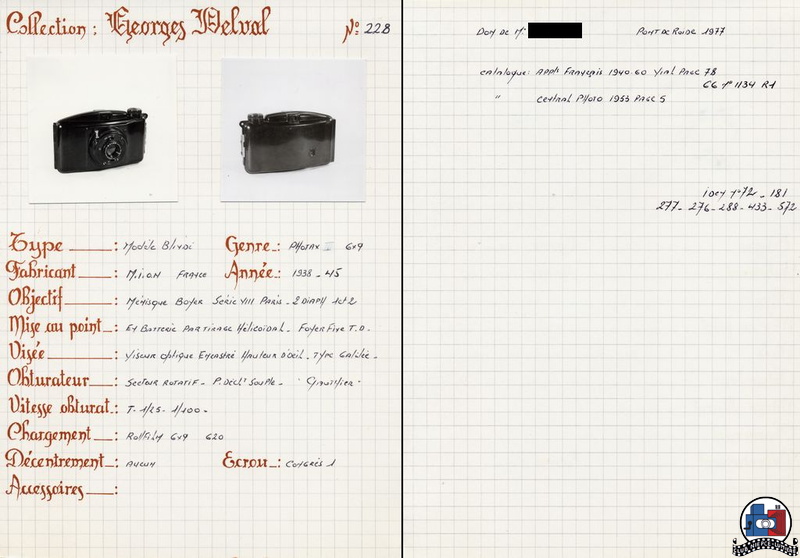 Collection : Georges Delval
No 228
Type : Modèle Blindé
Genre : PHOTAX II 6x9
Fabricant : M.I.O.M FRANCE
Année : 1938 - 45
Objectif : Ménisque Boyer Série VIII Paris - 2 DIAPH 1et2
Mise au point : En Batterie PAR TIRAGE Hélicoïdal - Foyer Fixe T.D.
Visée : Viseur optique Encastré Hauteur d'oeil - Type Galilée -
Obturateur : Secteur ROTATIF - P. Décl! Souple -
Vitesse obturat. : T - 1/25 - 1/100 -
Chargement : Rollfilm 6x9 620
Décentrement : AUCUN
Ecrou : CONGRÈS 1
Accessoires :
DON DE Mr
PONT DE ROIDE 1977
catalogue: APPls Français 1940.60 Vial PAGE 78
CG n° 1134 R1
" Central PHOTO 1953 PAGE 5
idem n°72 - 181
277 - 276 - 288 - 433 - 572